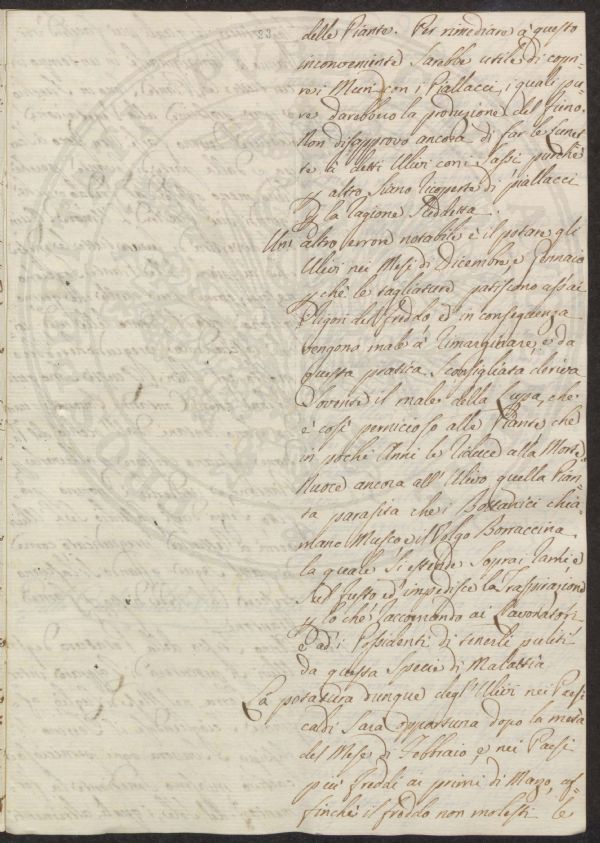 23
delle Piante. Per rimediare a questo
inconveniente sarebbe utile di copri-
re i Muri con i Piallacci, i quali pu-
re darebbero la produzione del
Non disapprovo ancora di far le Lunet-
te a detti Ulivi con i Sassi purchè
p altro siano ricoperte di piallacci
p la ragione suddetta.
Un' altro errore notabile è il potare gli
Ulivi nei Mesi di Dicembre e Gennaio
p chè le tagliature patiscono assai
i rigori del freddo ed in conseguenza
vengono male a rimarginare, e da
questa pratica sconsigliata deriva
sovente il male della Lupa, che
è così pernicioso alle Piante che
in pochi Anni le riduce alla Morte.
Nuoce ancora all' Ulivo quella Pian-
ta parasita che i Bottanici chia-
mano Musco e il Volgo Borraccina
la quale si estende sopra i rami e
sul fusto ed impedisce la traspirazione
p lo chè raccomando ai Lavoratori
e ad i Possidenti di tenerli puliti
da questa specie di Malattia
La potatura dunque degl' Ulivi nei Paesi
caldi sarà opportuna dopo la metà
del Mese di Febbraio, e nei Paesi
più freddi ai primi di Marzo, af-
finchè il freddo non molesti le